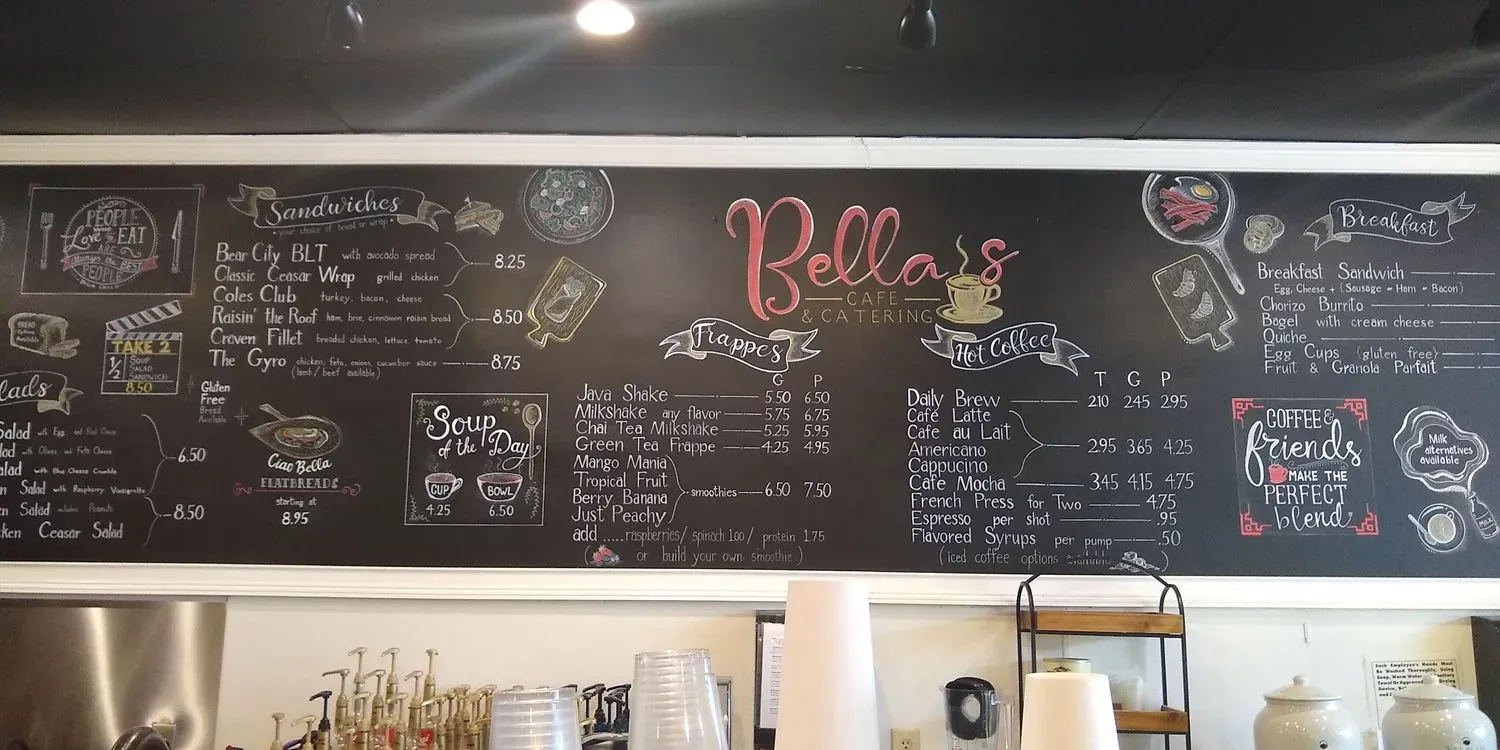 PEOPLE
who
Love to EAT
ARE
always the BEST
PEOPLE
BREAD
Options
Available
TAKE 2
1/2
SOUP
SALAD
SANDWICH
8.50
Gluten
Free
Bread
Available
lads
Salad with Egg and
lad with Olives and Feta Cheese
alad with Blue Cheese Crumble
n Salad with Raspberry Vinaigrette
6.50
n Salad includes Peanuts
ken Ceasar Salad
8.50
Sandwiches
your choice of bread or wrap
Bear City BLT with avocado spread
Classic Ceasar Wrap grilled chicken
8.25
Coles Club turkey, bacon, cheese
Raisin' the Roof ham, brie, cinnamon raisin bread
Craven Fillet breaded chicken, lettuce, tomato
8.50
The Gyro chicken, feta, onions, cucumber sauce 8.75
(lamb/beef available)
Ciao Bella
FLATBREADS
starting at
8.95
Soup
of the Day
CUP BOWL
4.25 6.50
Bella's
CAFE
& CATERING
Frappes
G P
Java Shake 5.50 6.50
Milkshake any flavor 5.75 6.75
Chai Tea Milkshake 5.25 5.95
Green Tea Frappe 4.25 4.95
Mango Mania
Tropical Fruit
Berry Banana
Just Peachy
smoothies 6.50 7.50
add .....raspberries/ spinach 1.00/ protein 1.75
( or build your own smoothie )
Hot Coffee
T G P
Daily Brew 2.10 2.45 2.95
Café Latte
Cafe au Lait
Americano
Cappucino
2.95 3.65 4.25
Cafe Mocha 3.45 4.15 4.75
French Press for Two 4.75
Espresso per shot .95
Flavored Syrups per pump .50
(iced coffee options available
Breakfast
Breakfast Sandwich
Egg, Cheese + (Sausage - Ham - Bacon)
Chorizo Burrito
Bagel with cream cheese
Quiche
Egg Cups (gluten free)
Fruit & Granola Parfait
COFFEE &
friends
MAKE THE
PERFECT
blend
Milk
alternatives
available
MILK
Each Employee's Hands Must
Be Washed Thoroughly, Using
Soap, Warm Water
Towel Or Approved Drying